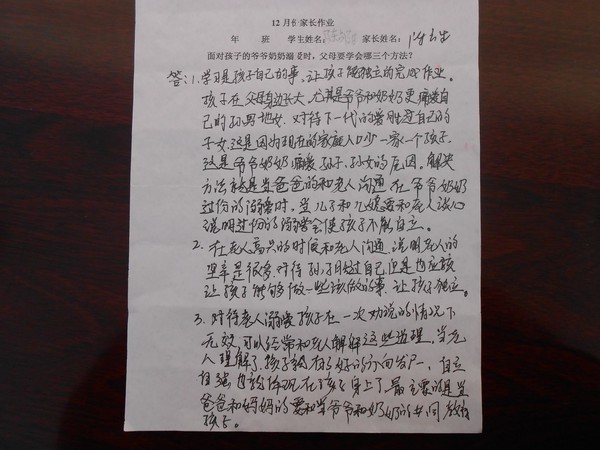 12月份家长作业
年 班 学生姓名: 家长姓名:
面对孩子的爷爷奶奶溺爱时，父母要学会哪三个方法?
答:1.学习是孩子自己的事、让孩子能独立的完成作业。
孩子在父母身边长大，尤其是爷爷和奶奶更痛爱自
己的孙男地女.对待下一代的爱胜过自己的
子女.这是因为现在的家庭人口少一家一个孩子.
这是爷爷奶奶痛爱孙子、孙女的原因，解决
方法就是当爸爸的和老人沟通在爷爷奶奶
过份的溺爱时.当儿子和儿媳要和老人谈心
说明过份的溺爱会使孩子不能自立。
2.在老人高兴的时候和老人沟通.说明老人的
是很多.对待孙子胜过自己但是也应该
让孩子能够做一些该做的事.让孩子独立。
3.对待老人溺爱孩子在一次劝说的情况下
无效.可以经常和老人讲解这些道理，当老
人理解了.孩子就有了好的方向发，自立
自强 体现在孩子身上了.最主要的是当
爸爸和妈妈的要和当爷爷和奶奶的共同教育
孩子。